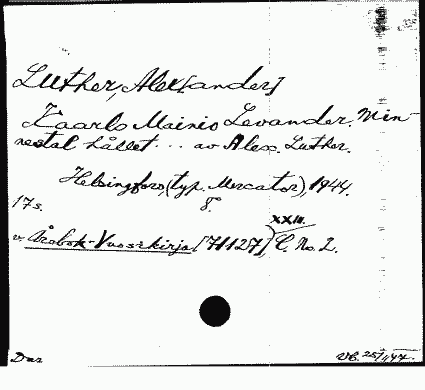 Luther, Alex[ander]
Kaarlo Mainio Levander. Min-
nestal hållet ... av Alex. Luther.
Helsingfors, (typ. Mercator), 1944.
17 s. 8°.
XXII.
v. Årsbok-Vuosikirja [71127] C. No 2.
Dar
25/1,47.